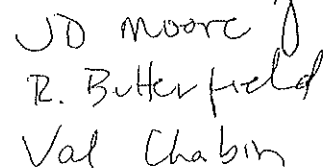 JD Moore
R. Butterfield
Val Chabin